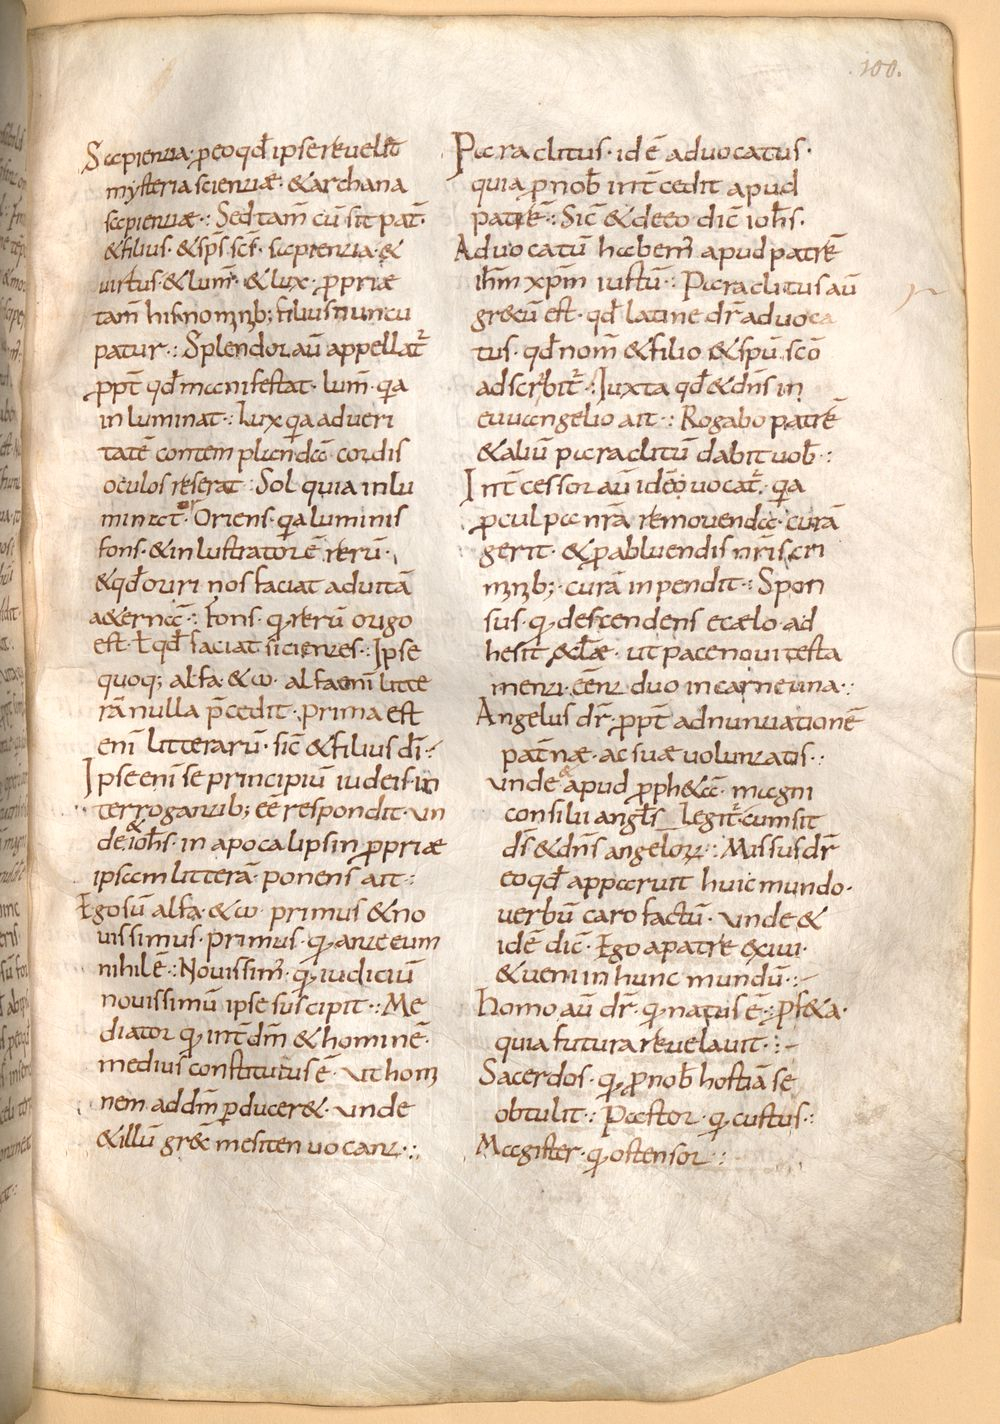 .100.
Sapientia· ꝑeoqđ ipse reveleꞇ
mysteria scientiae· &archana
sapientiae·: Sed tam̄ cū sit pat̄·
&filius· &sp̄s sc̄s· sapientia· &
virtus· &lum̄· &lux· ꝓpriae
tam̄ his nominib; filius nuncu
patur·: Splendor aū appellat᷑
ꝓpt̄ qđ manifestat· lum̄· q̄a
inluminat·: Lux q̄a ad veri
tatē contemplanda cordis
oculos reserat·: Sol quia inlu
minat· Oriens· q̄a luminis
fons· &inlustrator ē rerū·
&qđ oriri nos faciat ad vitā
aeterna·: Fons· q̨ rerū origo
est· ł qđ faciat sicientes·: Ipse
quoq; alfa· &ω· alfa enī litte
rā nulla p̄cedit· prima est
enī litterarū· sic̄ &filius dī·:
Ipse enī se principiū iudeis in
terrogantib; eē respondit· un
de &ioh̄s· in apocalipsin ꝓpriae
ipsam litterā· ponens ait·:
Ego sū alfa· &ω· primus &no
vissimus· primus· q̨ ante eum
nihil ē·: Novissim̄· q̨ iudiciū
novissimū ipse suscipit·: Me
diator q̨ int̄ dm̄ &hominē·
medius constitutus ē· ut homi
nem ad dm̄ ꝑducer&· unde
&illū grec̄ mesiten vocant·:
Paraclitus· idē advocatus·
quia ꝓ nob̄ int̄cedit apud
patrē·: Sic̄ &de eo dic̄ ioh̄s·
Advocatū habem̄ apud patrē
ih̄m xp̄m iustū·: Paraclitus aū
grecū est· qđ latine dr̄ advoca
tus· qđ nom̄ &filio &sp̄u sc̄o
adscribit᷑·: Iuxta qđ &dn̄s in
euuangelio ait·: Rogabo patrē
&aliū paraclitū dabit vob̄·:
Int̄cessor aū ideo vocat᷑· q̄a
ꝓ culpa nr̄a removenda· curā
gerit· &ꝓ abluendis nr̄is cri
minib;· curā inpendit·: Spon
sus· q̨ descendens e caelo· ad
hesit eclae· ut pace novi testa
menti· eēnt duo in carne una·:
Angelus dr̄· ꝓpt̄ adnuntiationē
pat̄nae· ac suae voluntatis·:
unde & apud ꝓph&a· magni
consilii angl̄s legit᷑· cum sit
ds̄ &dn̄s angelorum·: Missus dr̄
eo qđ apparuit huic mundo·
verbū caro factū· unde &
idē dic̄· Ego a patre exivi·
&veni in hunc mundū·:
homo aū dr̄· q̨ natus ē·: ꝓf&a·
quia futura revelavit·:
Sacerdos· q̨ ꝓ nob̄ hostiā se
obtulit·: Pastor· q̨ custus·:
Magister· q̨ ostensor·: